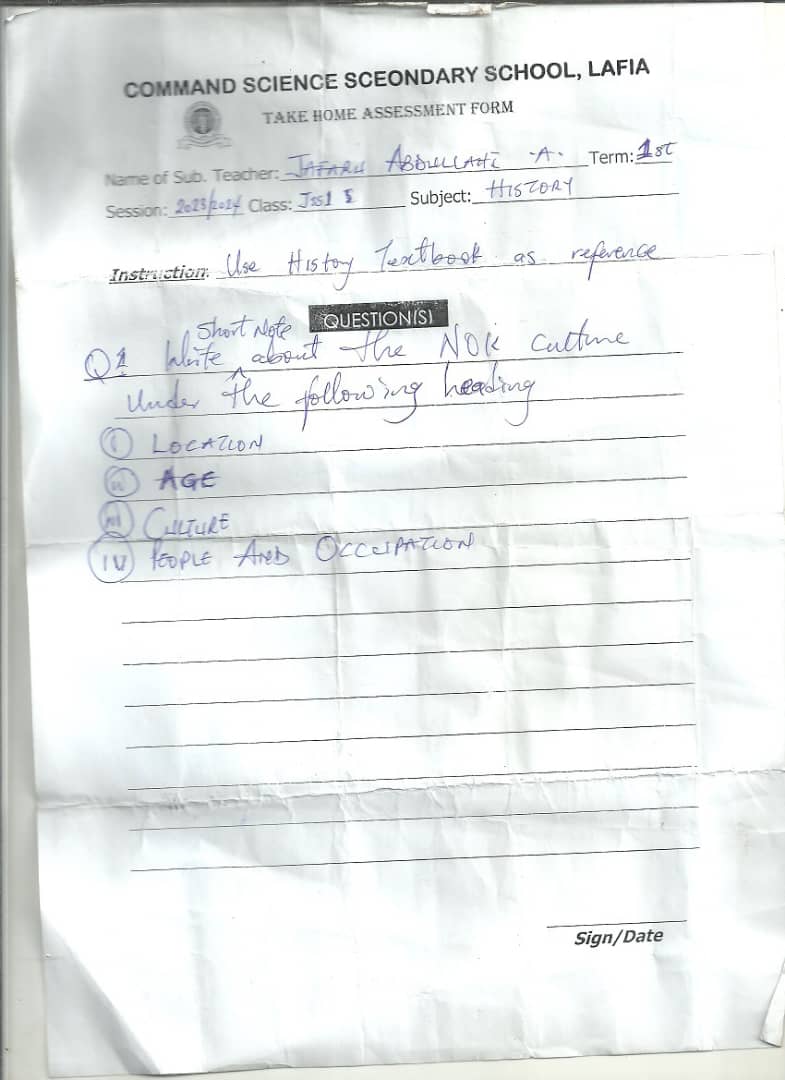 COMMAND SCIENCE SCEONDARY SCHOOL, LAFIA
TAKE HOME ASSESSMENT FORM
Name of Sub. Teacher: JAFARU ABDULLAHI .A. Term: 1st
Session: 2023/2024 Class: JSS1 Subject: HISTORY
Instruction: Use History Textbook as reference
QUESTION(S)
Short Note
Q1 Write about the NOK culture
Under the following heading
(i) LOCATION
(ii) AGE
(iii) CULTURE
(iv) PEOPLE AND OCCUPATION
Sign/Date